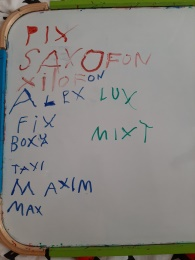 PIX
SAXOFON
XilOFON
ALEX LUX
FiX
MIXT
BOXX
TAXI
MAXIM
MAX